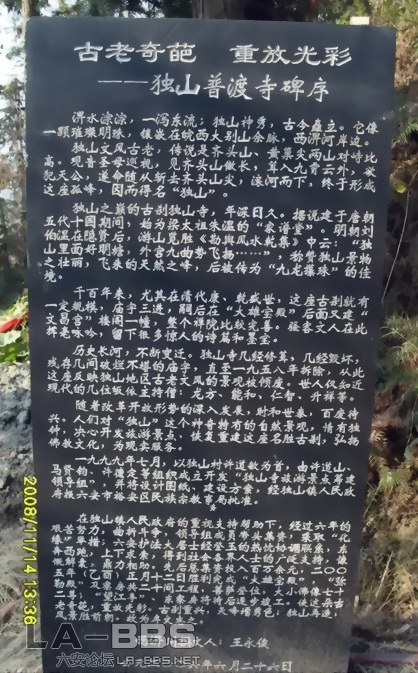 古老奇葩 重放光彩
——独山普渡寺碑序
淠水淙淙，一泻东流；独山神秀，古今矗立。它像
一颗璀璨明珠，镶嵌在皖西大别山余脉，西淠河岸边。
独山文风古老，传说是齐头山、黄巢尖两山对峙比
高。观音圣母巡视，见齐头山傲长，耸入九霄云外，欲
犯天公，遂命随从斩去齐头山尖，滚河而下，终于形成
这座孤峰，因而得名“独山”。
独山之巅的古刹独山寺，年深日久。据说建于唐朝
五代十国期间，始为梁太祖朱温的“家谱堂”。明朝刘
伯温在隐贤后，游山览胜《勘舆风水乾集》中云：“独
山里面好明糖，外宫九曲势飞扬……”，称赞独山景物
之壮丽，飞来的天然之峰，后被传为“九龙攥珠”的佳
境。
千百年来，尤其在清代康、乾盛世，这座古刹就有
一定规模，庙宇三进，嗣后在“大雄宝殿”后面又建“
文昌宫”，楼阁一幢，整个禅院比较完善。骚客文人在此
挥毫咏吟，留下很多惊人的诗篇和墨宝。
历史长河，不断变迁。独山寺几经修葺，几经毁坏，
或存几间破烂不堪的庙宇，直至一九五八年拆除，从此
这座反映独山地区古老文风的景观被倾废。世人仅知近
现代的几位皈依主持僧：先方、能和、仁智、升祥等。
随着改革开放形势的深入发展，时和世泰，百废待
兴，人们对“独山”这个神奇特有的自然景观，情有独
钟，决心开发旅游景点，恢复重建这座名胜古刹，弘扬
佛教文化，为现实服务。
一九九九年七月，以独山村许道敏为首，由许道山、
马贤钧、许道定等组织成立开发“独山寺旅游景点筹建
领导组”，并将设计图纸、建设方案，经独山镇人民政
府报六安市裕安区民族宗教事局批准。
在独山镇人民政府的重视支持帮助下，经过六年的
艰苦努力，曲折斗争，领导组成员带头集资，采取“化
缘”举措；兴土护法大居士经登玉的热忱协调联系，东
奔西跑，上下求索，得到社会各界人士的广泛支持，谦
理解支援，鼎力相助。先后总集资投入百万余元，二〇〇
五年（乙酉）正月十二日胜利完成“大雄宝殿”、“弥
2008/11/14 13:36
LA-BBS
六安论坛 LA-BBS.NET
人：王永俊
六年六月二十六日